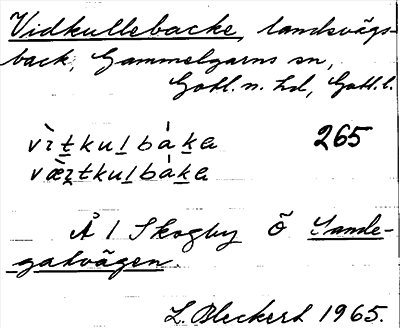 Vidkullebacke, landsvägs-
back, Gammelgarns sn,
Gotl. n. hd, Gotl. l.
vìṯkuḻbákа 265
væ̀ẕṯkuḻbákа
Å / Skogby Ö Sande-
gatvägen.
L. Bleckert 1965.